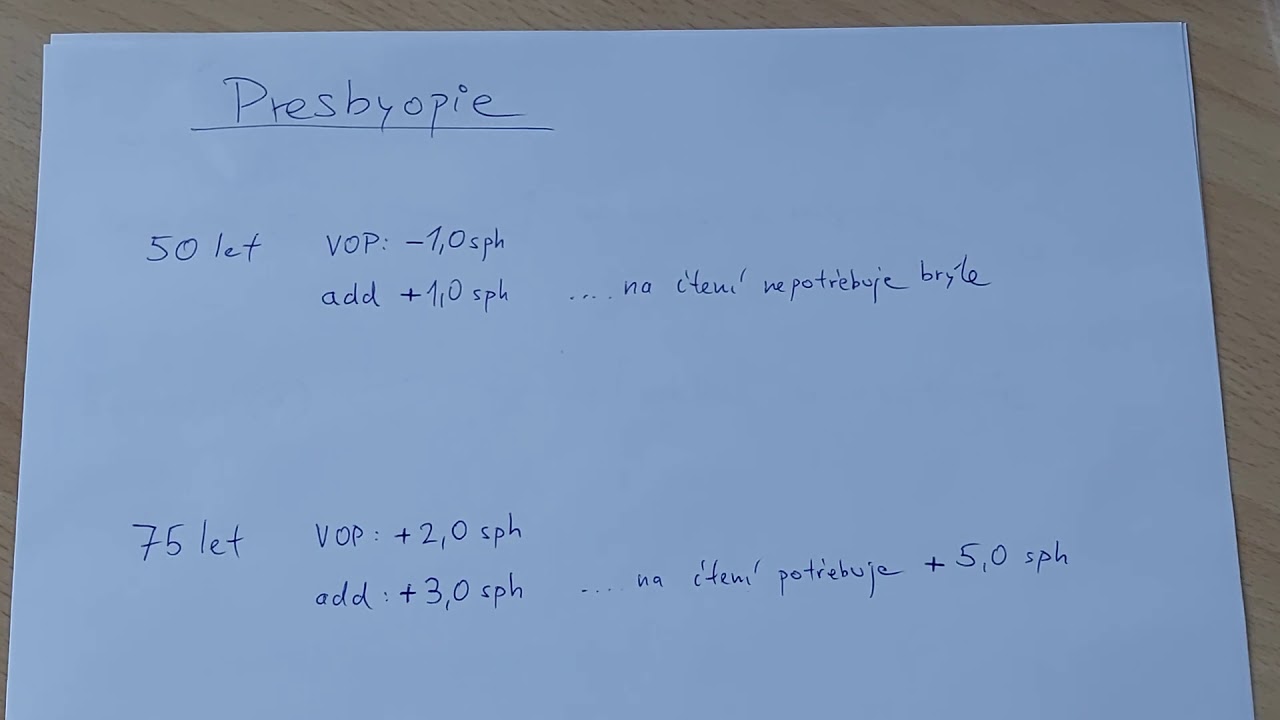 Presbyopie
50 let VOP: -1,0 sph
add +1,0 sph .... na čtení nepotřebuje brýle
75 let VOP: +2,0 sph
add: +3,0 sph .... na čtení potřebuje +5,0 sph